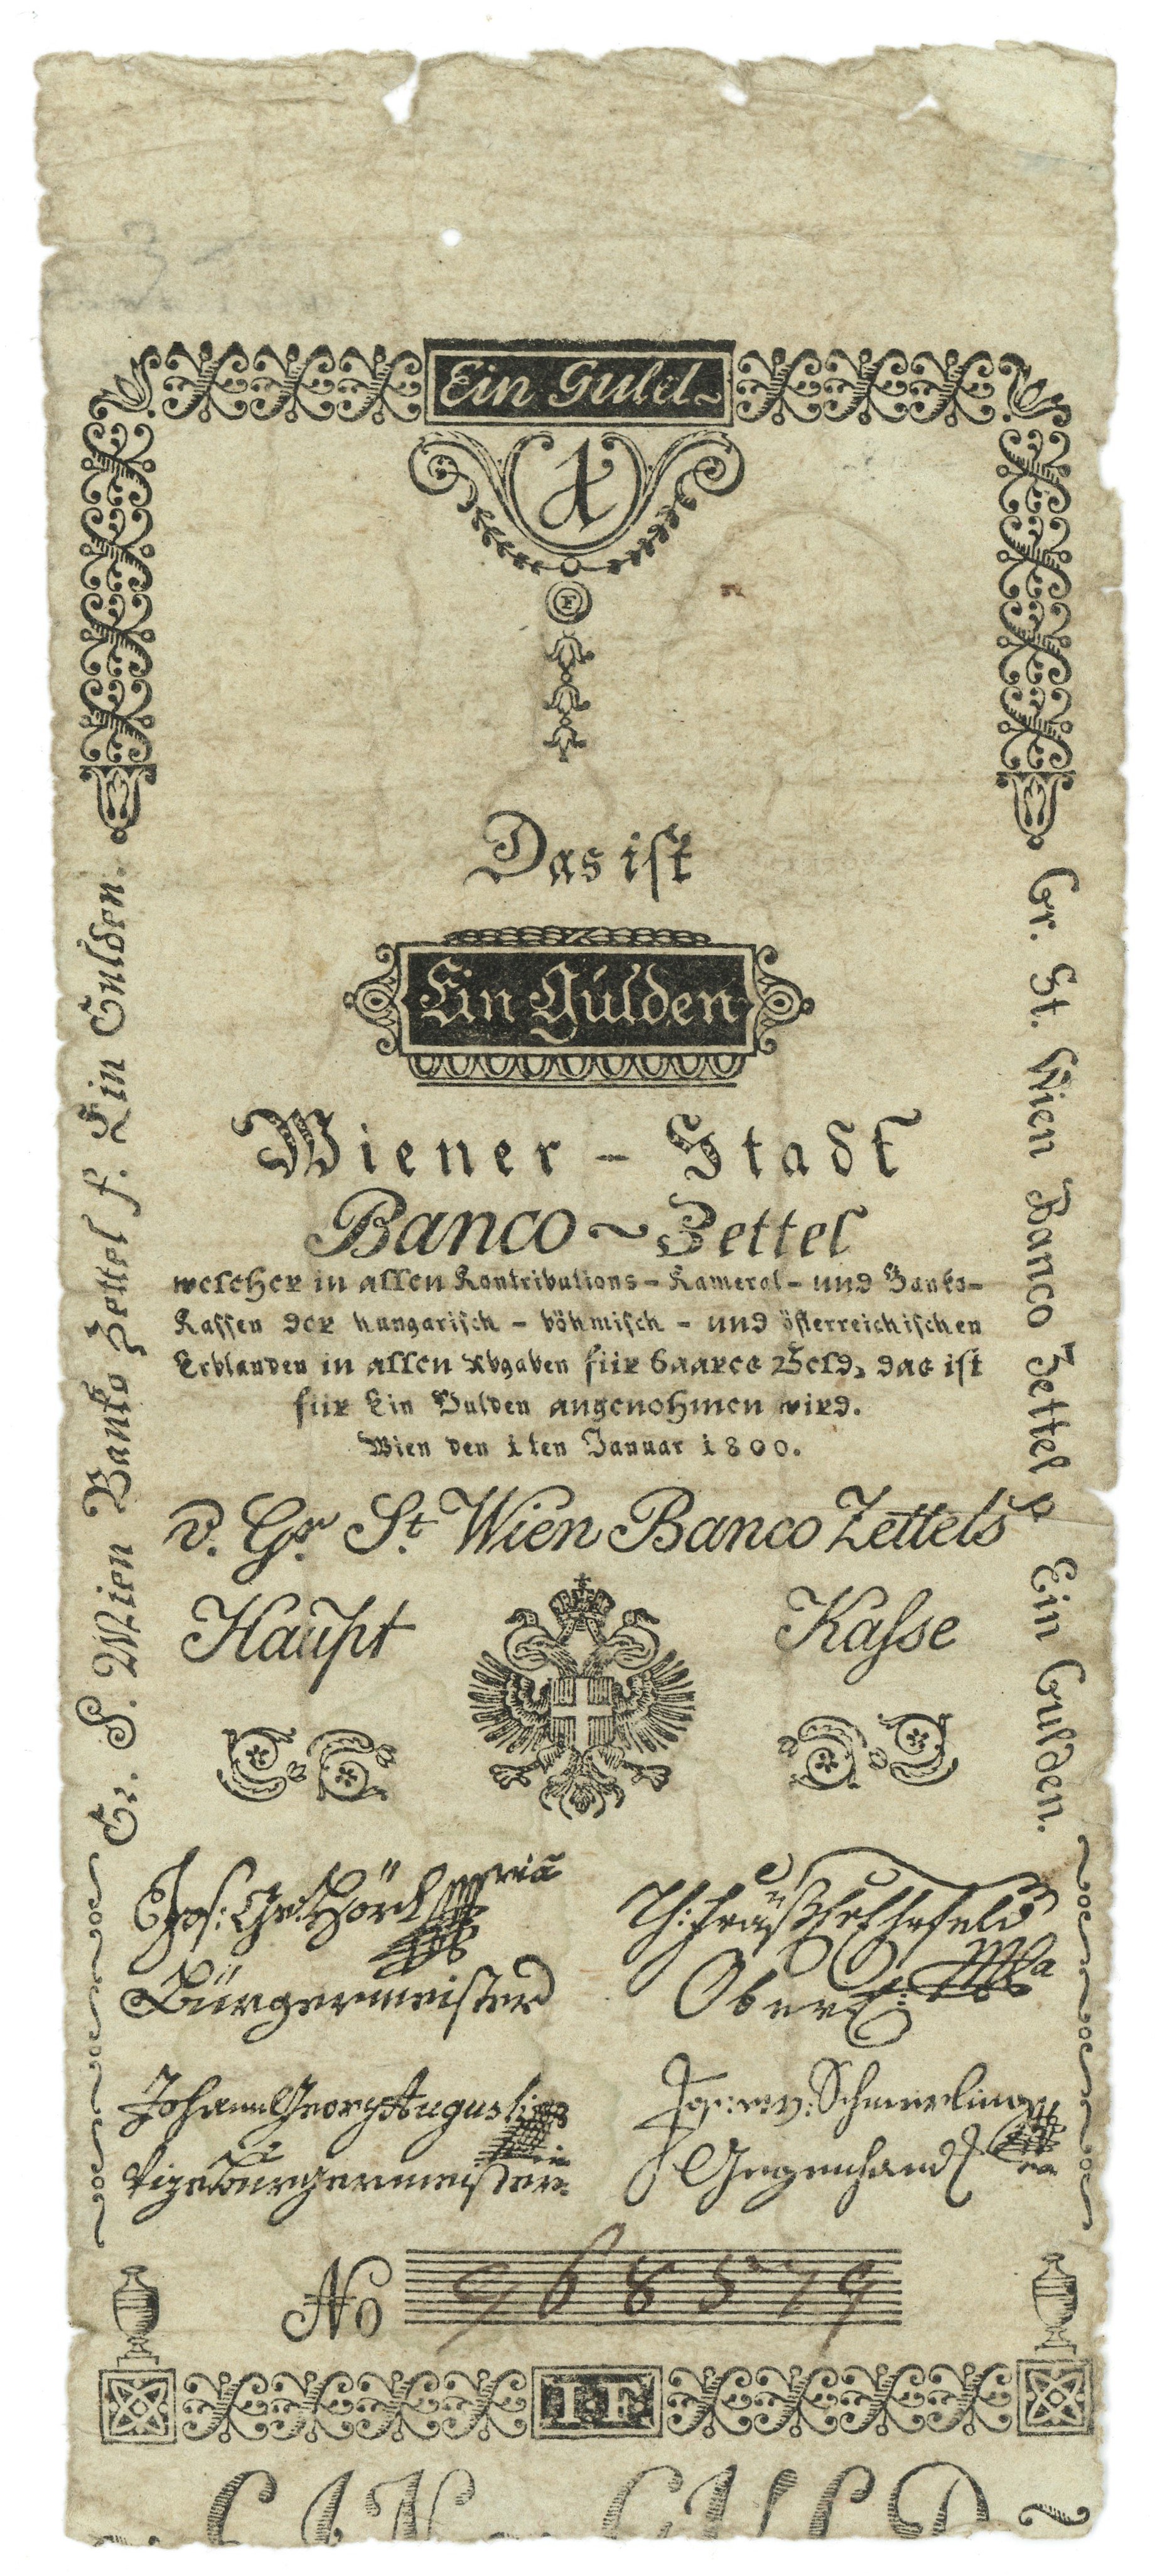 Ein Guld~
1
F
Das ist
Ein Gulden
Wiener – Stadt
Banco ~ Zettel
welcher in allen Kontributions – Kameral – und Banko–
Kassen der hungarisch – böhmisch – und österreichischen
Erblanden in allen Abgaben für baares Geld, das ist
für Ein Gulden angenohmen wird.
Wien den 1ten Januar 1800.
d. Gr. St. Wien Banco Zettels
Haupt Kasse
Gr. S. Wien Banko Zettel f. Ein Gulden.
Gr. St. Wien Banco Zettel p Ein Gulden.
Jos: Gr: Hörl
Bürgermeister
Johann Georg Augusti
Vizebürgermeister
Schmerling
Gegenhand
No 968579
1 F